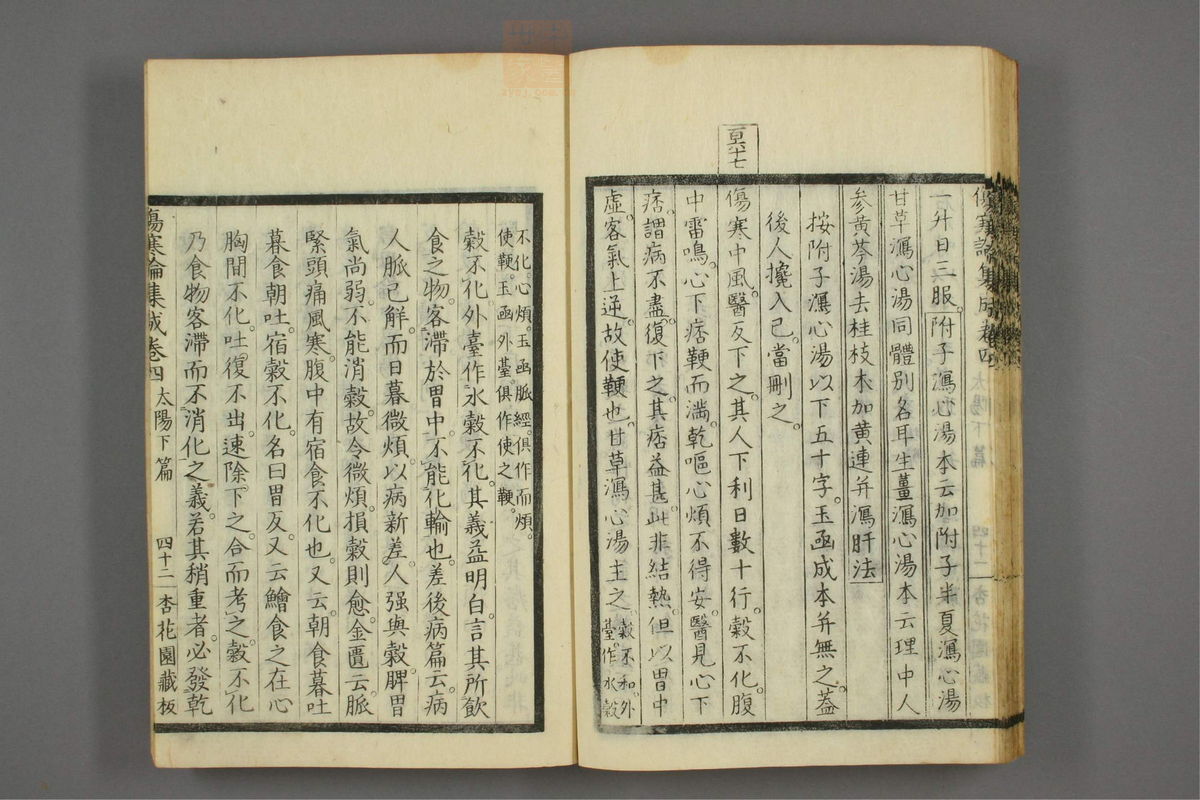 傷寒論集成卷四
一升日三服。附子瀉心湯本云加附子半夏瀉心湯
甘草瀉心湯同體別名耳生薑瀉心湯本云理中人
參黃芩湯去桂枝朮加黃連并瀉肝法
按附子瀉心湯以下五十字。玉函成本并無之。蓋
後人攙入已。當刪之。
百六十七
傷寒中風。醫反下之。其人下利日數十行。穀不化。腹
中雷鳴。心下痞鞕而滿。乾嘔心煩不得安。醫見心下
痞。謂病不盡。復下之。其痞益甚。此非結熱。但以胃中
虛。客氣上逆。故使鞕也。甘草瀉心湯主之。穀不和。外
臺。作水穀
不化。心煩。玉函脈經。俱作而煩。
使鞕。玉函外臺。俱作使之鞕。
穀不化。外臺作水穀不化。其義益明白。言其所飲
食之物。客滯於胃中。不能化輸也。差後病篇云。病
人脈已解。而日暮微煩。以病新差。人强與穀。脾胃
氣尚弱。不能消穀。故令微煩。損穀則愈。金匱云。脈
緊頭痛風寒。腹中有宿食不化也。又云。朝食暮吐
暮食朝吐。宿穀不化。名曰胃反。又云。鱠食之在心
胸間不化。吐復不出。速除下之。合而考之。穀不化
乃食物客滯而不消化之義。若其稍重者。必發乾
傷寒論集成卷四 太陽下篇 四十二 杏花園藏板